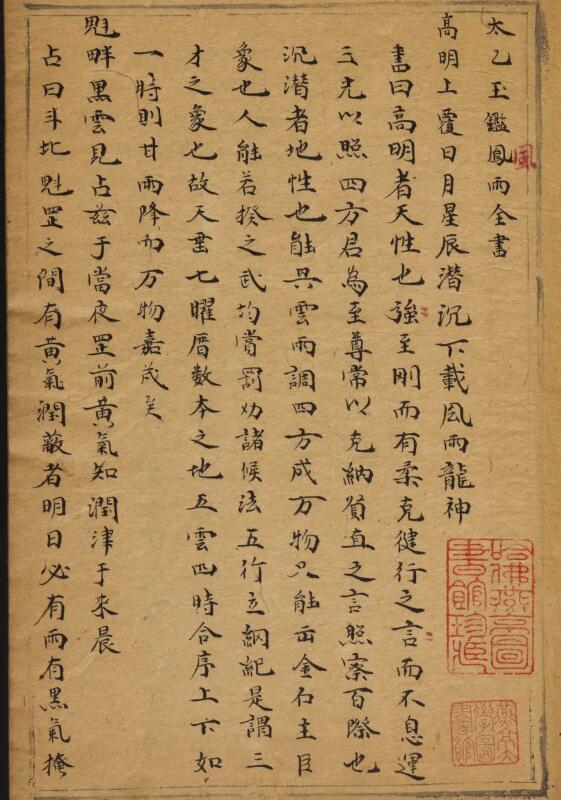 太乙玉鑑鳳雨全書
風
高明上覆日月星辰潛沉下載風雨龍神
書曰高明者天性也強至刚而有柔克徤行之言而不息運
三光以照四方君為至尊常以克納質直之言照察百際也
沉潛者地性也能興雲雨調四方成万物又能出金石主臣
象也人能若揆之武均賞罰劝諸候法五行立綱紀是謂三
才之象也故天垂七曜暦数本之地五雲四時合序上下如
一時則甘雨降而万物嘉成矣
魁畔黒雲見占兹于當夜罡前黄氣知潤津于來晨
占曰斗北魁罡之間有黄氣潤蔽者明日必有雨有黒氣掩
哈佛燕京圖書館珍藏